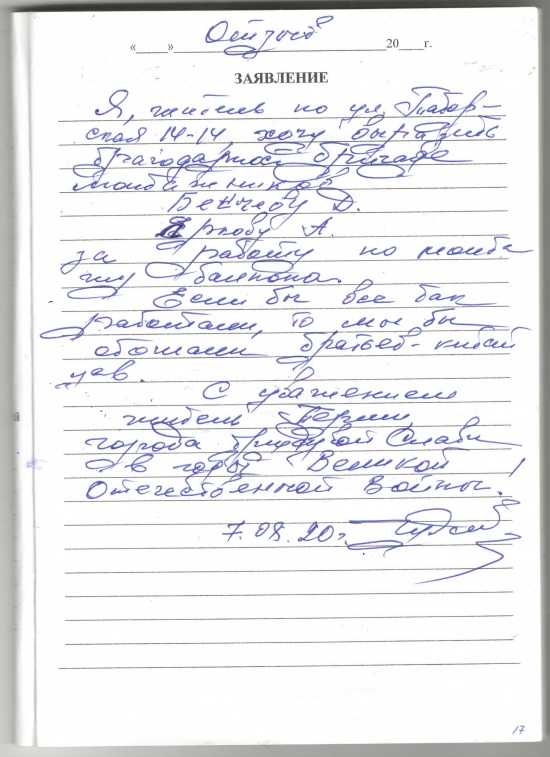 Отзыв
«____»____20___г.
ЗАЯВЛЕНИЕ
Я, житель по ул. Табор-
ская 14-14 хочу выразить
благодарность бригаде
монтажников
Бенчеву Д.
А.
за работу по монта
жу балкона.
Если бы все так
работали, то мы бы
обогнали братьев-китай
цев.
С уважением
житель Перми,
города трудовой Славы
в годы Великой
Отечественной Войны!
7.08.20г.
17